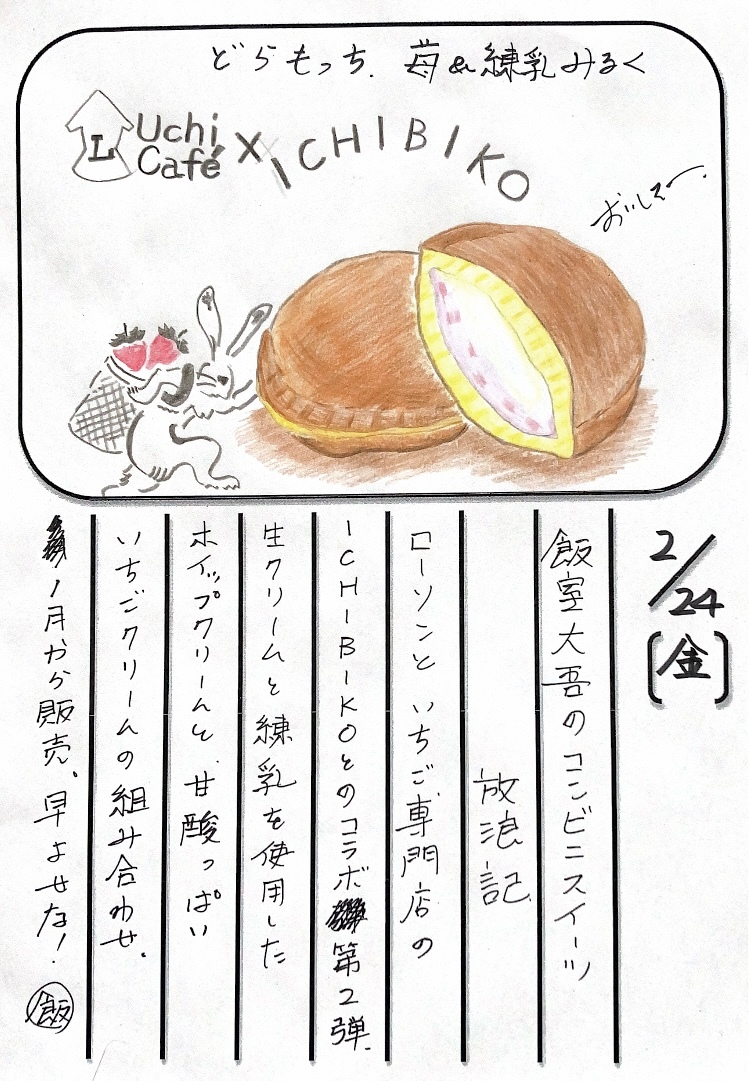 どらもっち 苺&練乳みるく
L Uchi Café × ICHIBIKO
おいしそー
2/24
[金]
飯室大吾のコンビニスイーツ
放浪記
ローソンといちご専門店の
ICHIBIKOとのコラボ第2弾.
生クリームと練乳を使用した
ホイップクリームと甘酸っぱい
いちごクリームの組み合わせ.
1月から販売. 早よせな!
飯